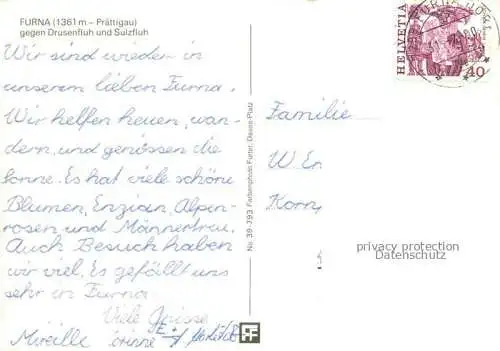 FURNA (1361 m – Prättigau)
gegen Drusenfluh und Sulzfluh
Wir sind wieder in
unserem lieben Furna.
Wir helfen heuen, wan-
dern und genössen die
Sonne. Es hat viele schöne
Blumen, Enzian, Alpen-
rosen und Männertreu.
Auch Besuch haben
wir viel. Es gefällt uns
sehr in Furna
Viele Grüsse
Mireille
No. 39-793 Farbenphoto Furter, Davos-Platz
HELVETIA
40
Familie
W En
Korn
privacy protection
Datenschutz